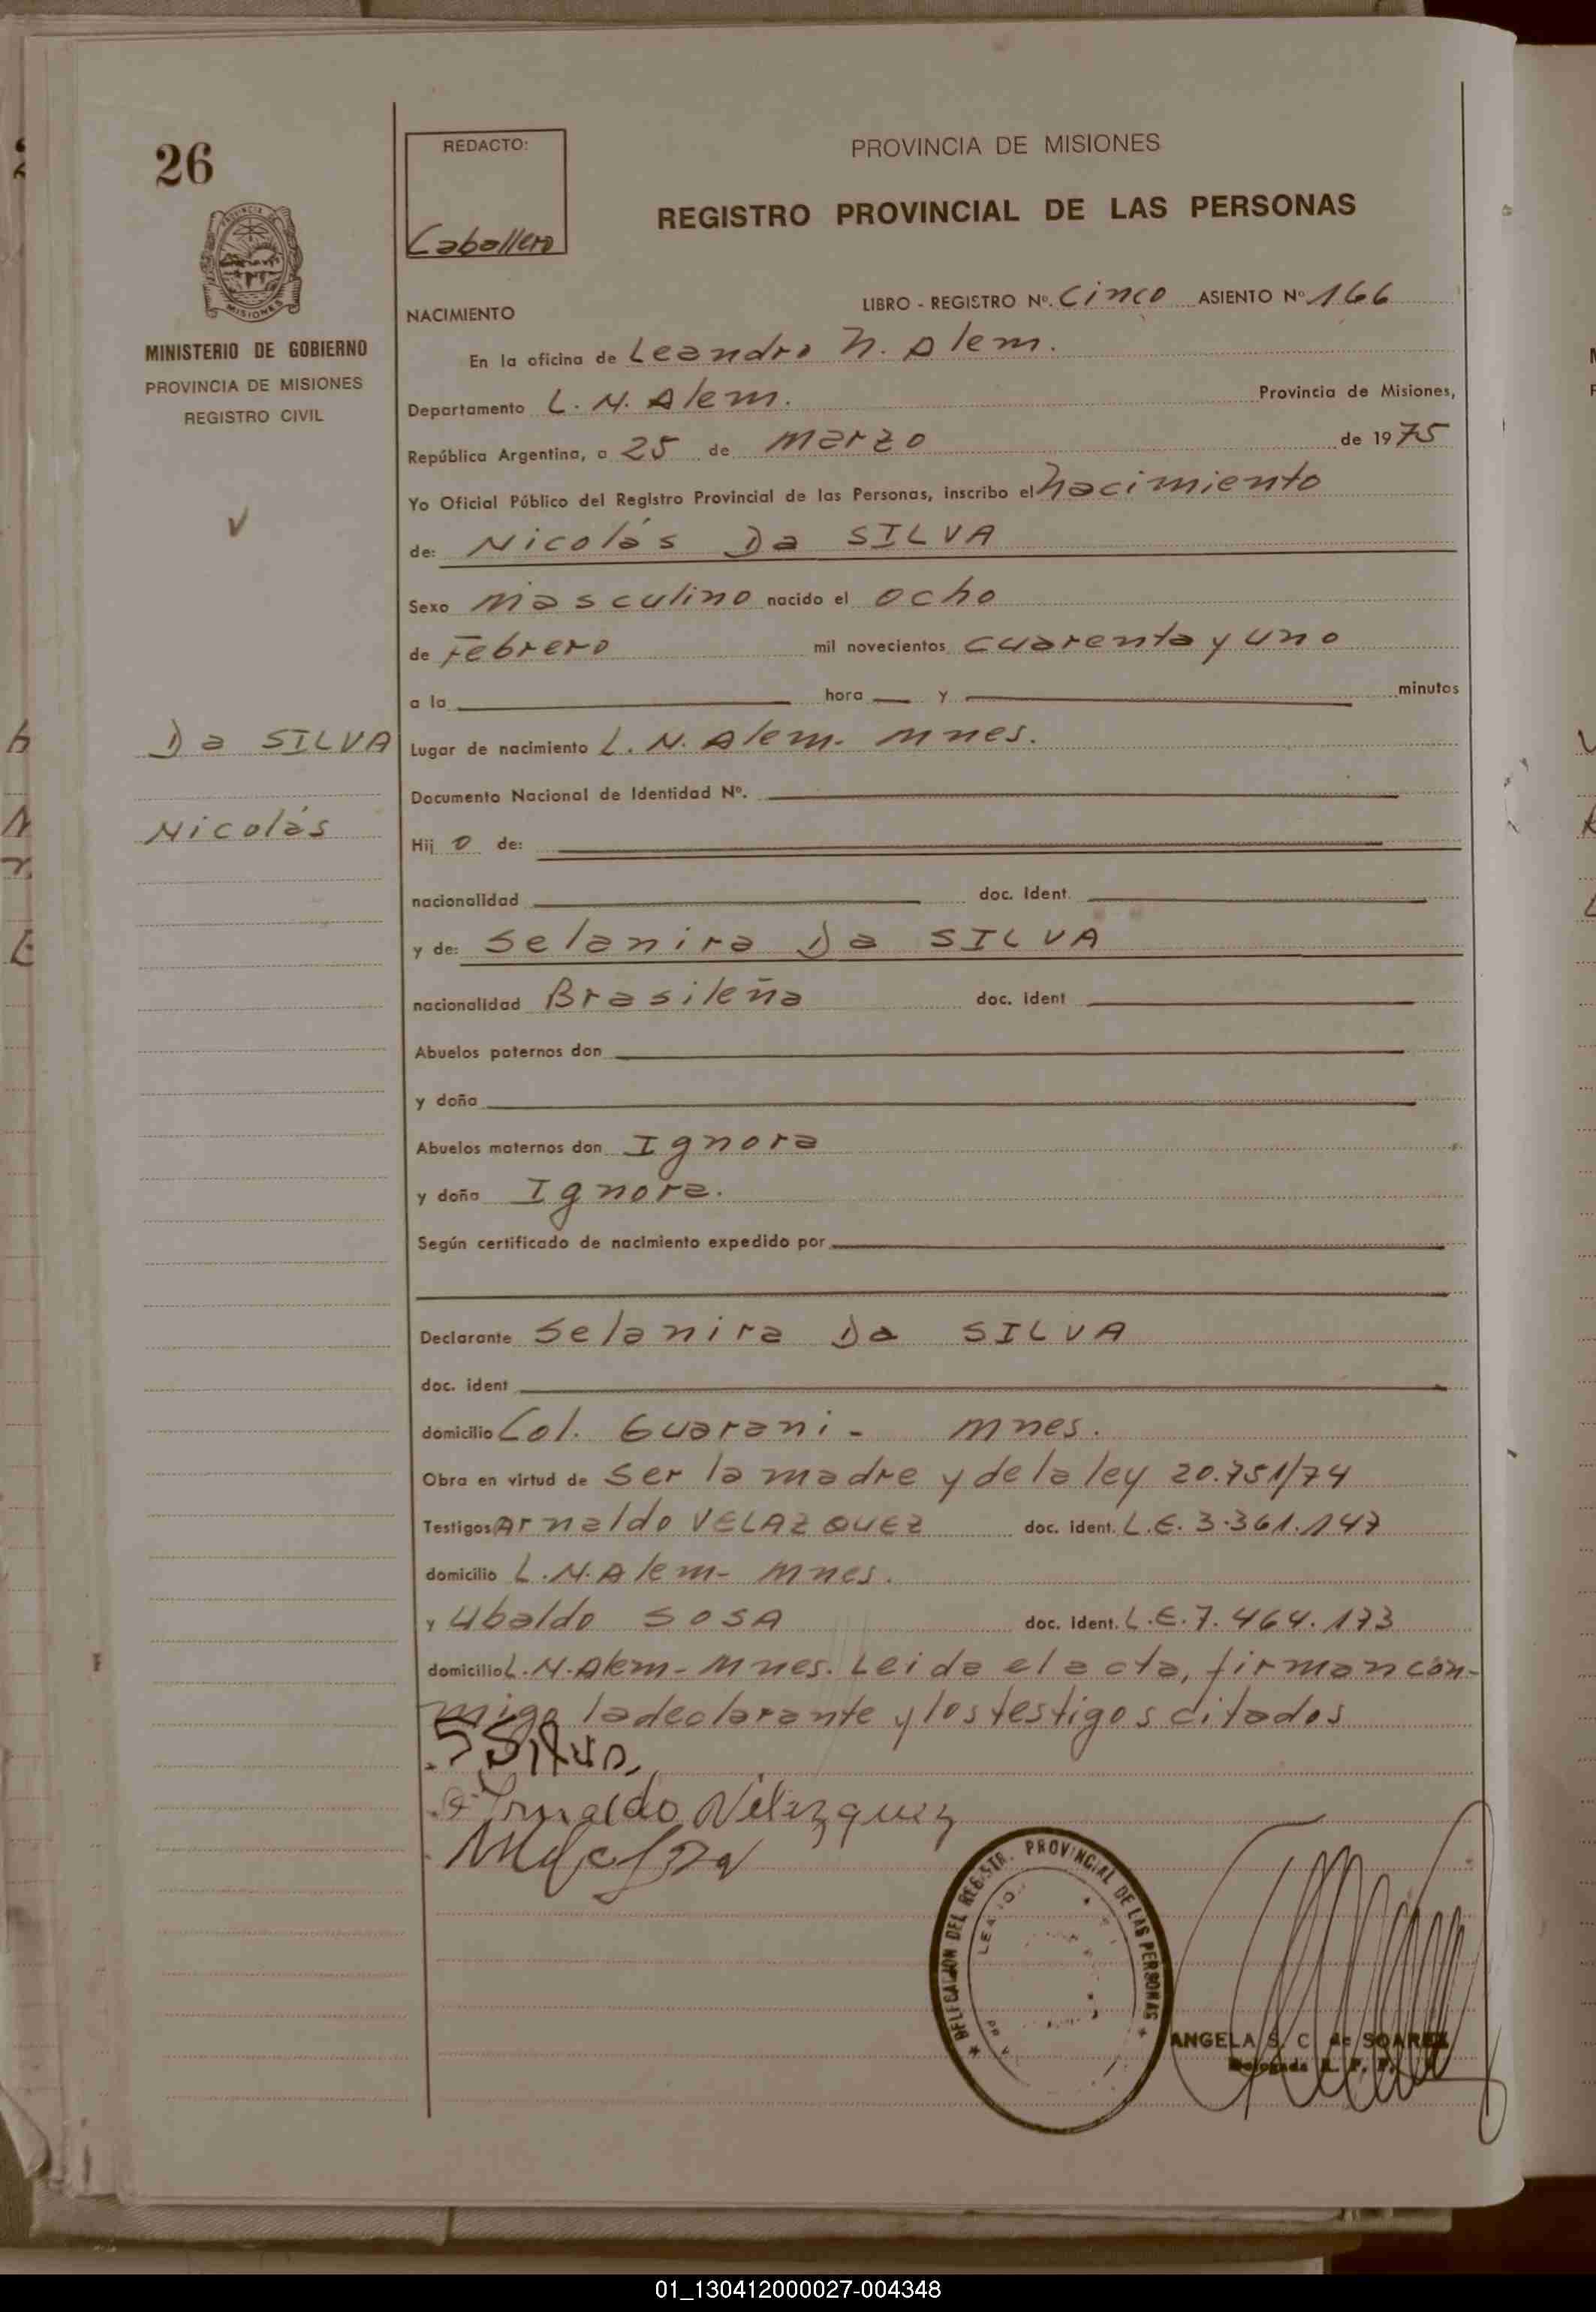 26
REDACTO:
Caballero
PROVINCIA DE MISIONES
REGISTRO PROVINCIAL DE LAS PERSONAS
PROVINCIA DE
MISIONES
MINISTERIO DE GOBIERNO
PROVINCIA DE MISIONES
REGISTRO CIVIL
LIBRO - REGISTRO Nº. Cinco ASIENTO Nº 166
NACIMIENTO
En la oficina de Leandro N. Alem.
Departamento L. N. Alem. Provincia de Misiones,
República Argentina, a 25 de Marzo de 1975
Yo Oficial Público del Registro Provincial de las Personas, inscribo el nacimiento
de: Nicolás Da SILVA
Sexo masculino nacido el ocho
de Febrero mil novecientos cuarenta y uno
a la hora y minutos
Da SILVA
Nicolás
Lugar de nacimiento L. N. Alem- Mnes.
Documento Nacional de Identidad Nº.
Hijo de:
nacionalidad doc. ident.
y de: Selanira Da SILVA
nacionalidad Brasileña doc. ident
Abuelos paternos don
y doña
Abuelos maternos don Ignora
y doña Ignora.
Según certificado de nacimiento expedido por
Declarante Selanira Da SILVA
doc. ident
domicilio Col. Guarani - Mnes.
Obra en virtud de ser la madre y de la ley 20.751/74
Testigos Arnaldo VELAZQUEZ doc. ident. L.E. 3.361.147
domicilio L.N.Alem- Mnes.
y Ubaldo SOSA doc. ident. L.E. 7.464.173
domicilio L.N.Alem- Mnes. Leida el acta, firman con-
migo la declarante y los testigos citados
S Silva
Arnaldo Velazquez
DELEGACION DEL REGISTR. PROVINCIAL DE LAS PERSONAS
ANGELA S. C. de SOAREZ
Delegada R. P. P.
01_130412000027-004348